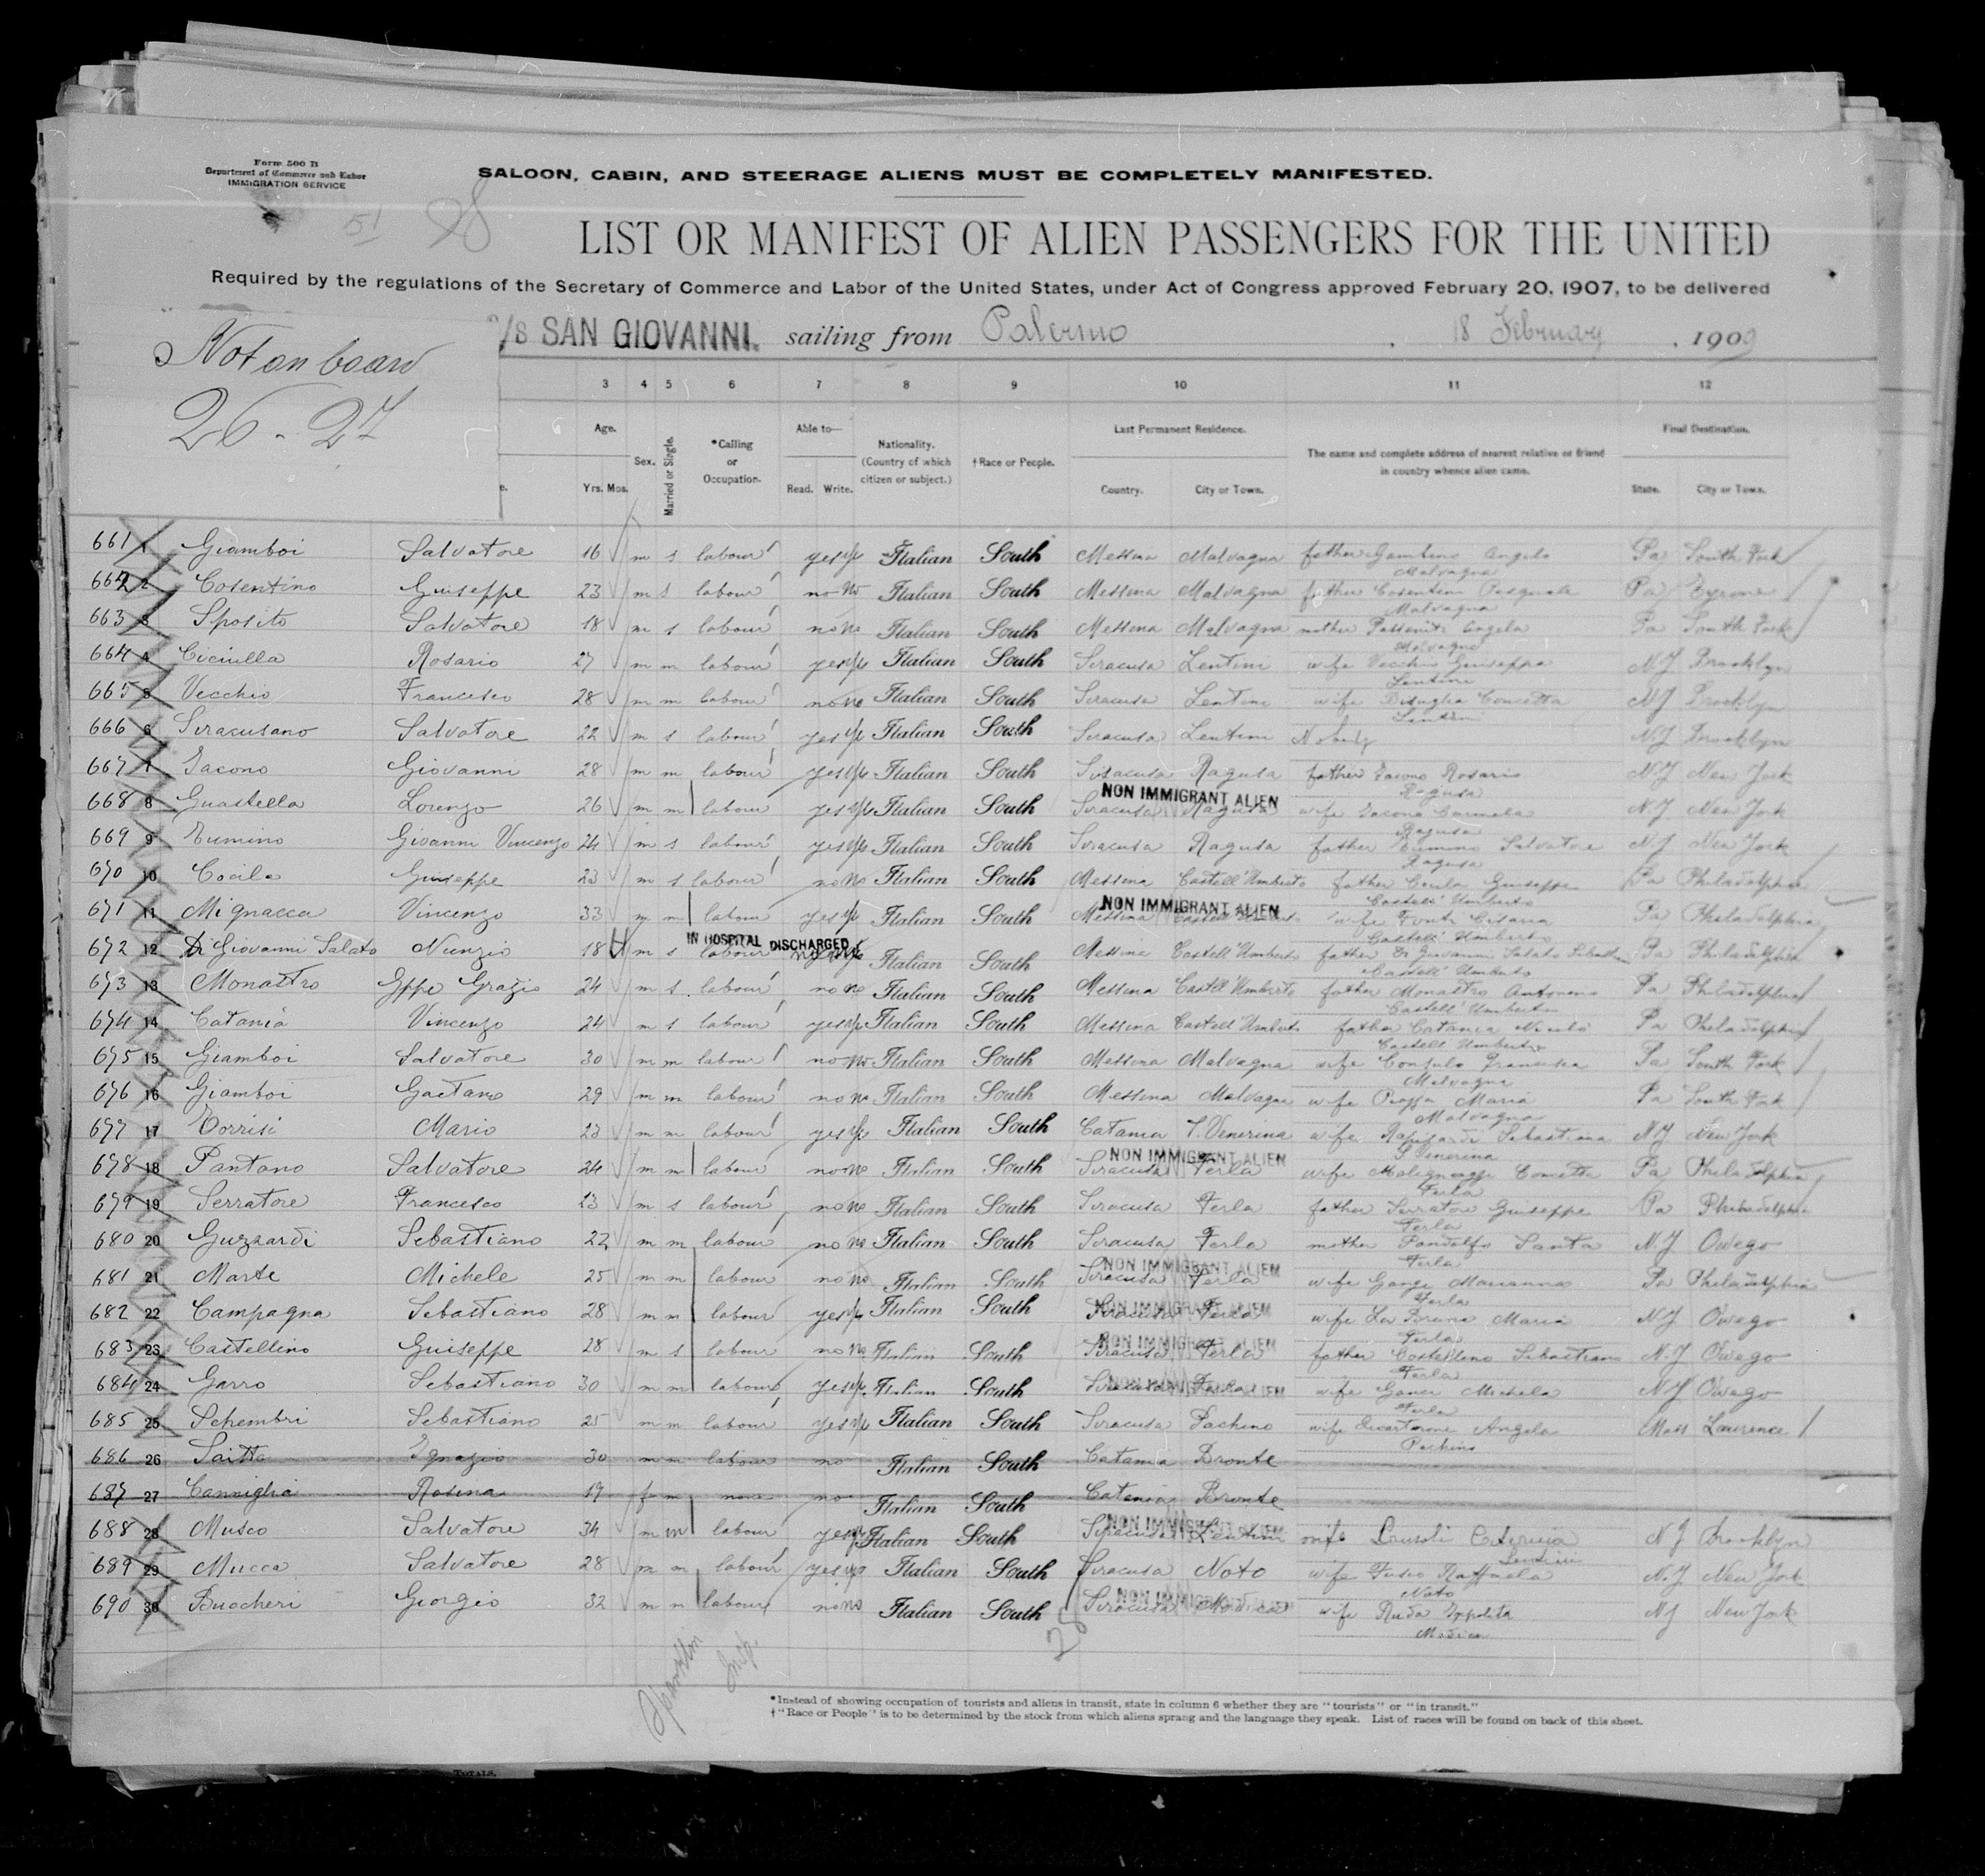 Form 500 B
Department of Commerce and Labor
IMMIGRATION SERVICE
51 98
SALOON, CABIN, AND STEERAGE ALIENS MUST BE COMPLETELY MANIFESTED.
LIST OR MANIFEST OF ALIEN PASSENGERS FOR THE UNITED
Required by the regulations of the Secretary of Commerce and Labor of the United States, under Act of Congress approved February 20, 1907, to be delivered
Not on board
26-27
S/S SAN GIOVANNI. sailing from Palermo , 18 February , 1909
3 4 5 6 7 8 9 10 11 12
Age. Sex. Married or Single. *Calling or Occupation. Able to— Nationality. (Country of which citizen or subject.) †Race or People. Last Permanent Residence. The name and complete address of nearest relative or friend in country whence alien came. Final Destination.
e. Yrs. Mos. Read. Write. Country. City or Town. State. City or Town.
661 1 Giamboi Salvatore 16 m s labour yes Italian South Messina Malvagna father Angelo Pa South Fork
Malvagna
662 2 Cosentino Guiseppe 23 m s labour no no Italian South Messina Malvagna father Cosentino Pasquale Pa Tyrone
Malvagna
663 3 Sposito Salvatore 18 m s labour no no Italian South Messina Malvagna mother Angela Pa South Fork
Malvagna
664 4 Rosario 27 m m labour yes Italian South Siracusa Lentini wife Vecchio Giuseppa NJ Brooklyn
Lentini
665 5 Vecchio Francesco 28 m m labour no no Italian South Siracusa Lentini wife Concetta NJ Brooklyn
Lentini
666 6 Siracusano Salvatore 22 m s labour yes Italian South Siracusa Lentini Nobody NJ Brooklyn
667 7 Iacono Giovanni 28 m m labour yes Italian South Siracusa Ragusa father Iacono Rosario NJ New York
Ragusa
NON IMMIGRANT ALIEN
668 8 Guastella Lorenzo 26 m m labour yes Italian South Siracusa Ragusa wife Iacono Carmela NJ New York
Ragusa
669 9 Tumino Giovanni Vincenzo 24 m s labour yes Italian South Siracusa Ragusa father Tumino Salvatore NJ New York
Ragusa
670 10 Cocila Guiseppe 23 m s labour no no Italian South Messina Castell'Umberto father Guiseppe Pa Philadelphia
Castell'Umberto
NON IMMIGRANT ALIEN
671 11 Mignacca Vincenzo 33 m m labour yes Italian South Messina Castell'Umberto wife Pa Philadelphia
Castell'Umberto
IN HOSPITAL DISCHARGED
672 12 Di Giovanni Salato Nunzio 18 m s labour Italian South Messina Castell'Umberto father Di Giovanni Salato Pa Philadelphia
Castell'Umberto
673 13 Monastro Gppe Grazio 24 m s labour no no Italian South Messina Castell'Umberto father Monastro Antonino Pa Philadelphia
Castell'Umberto
674 14 Catania Vincenzo 24 m s labour yes Italian South Messina Castell'Umberto father Catania Pa Philadelphia
Castell'Umberto
675 15 Giamboi Salvatore 30 m m labour no no Italian South Messina Malvagna wife Francesca Pa South Fork
Malvagna
676 16 Giamboi Gaetano 29 m m labour no no Italian South Messina Malvagna wife Maria Pa South Fork
Malvagna
677 17 Torrisi Mario 23 m m labour yes Italian South Catania S. Venerina wife Sebastiana NJ New York
S. Venerina
NON IMMIGRANT ALIEN
678 18 Pantano Salvatore 24 m m labour no no Italian South Siracusa Ferla wife Concetta Pa Philadelphia
Ferla
679 19 Serratore Francesco 13 m s labour no no Italian South Siracusa Ferla father Serratore Guiseppe Pa Philadelphia
Ferla
680 20 Guzzardi Sebastiano 22 m m labour no no Italian South Siracusa Ferla mother Pandolfo Santa NJ Owego
Ferla
NON IMMIGRANT ALIEN
681 21 Marte Michele 25 m m labour no no Italian South Siracusa Ferla wife Marianna Pa Philadelphia
Ferla
NON IMMIGRANT ALIEN
682 22 Campagna Sebastiano 28 m m labour yes Italian South Siracusa Ferla wife Maria NJ Owego
Ferla
NON IMMIGRANT ALIEN
683 23 Castellino Guiseppe 28 m s labour no no Italian South Siracusa Ferla father Castellino Sebastiano NJ Owego
Ferla
NON IMMIGRANT ALIEN
684 24 Garro Sebastiano 30 m m labour yes Italian South Siracusa Ferla wife Michela NJ Owego
Ferla
685 25 Schembri Sebastiano 25 m m labour yes Italian South Siracusa Pachino wife Angela Mass Lawrence
Pachino
686 26 Saitta Ignazio 30 m m labour no Italian South Catania Bronte
687 27 Canniglia Rosina 19 f m none no Italian South Catania Bronte
NON IMMIGRANT ALIEN
688 28 Musco Salvatore 34 m m labour yes Italian South Siracusa Lentini wife NJ Brooklyn
Lentini
689 29 Mucca Salvatore 28 m m labour yes Italian South Siracusa Noto wife Raffaela NJ New York
Noto
NON IMMIGRANT ALIEN
690 30 Buccheri Giorgio 32 m m labour no no Italian South Siracusa Modica wife NJ New York
Modica
28
Insp.
*Instead of showing occupation of tourists and aliens in transit, state in column 6 whether they are "tourists" or "in transit."
†"Race or People" is to be determined by the stock from which aliens sprang and the language they speak. List of races will be found on back of this sheet.
TOTALS.